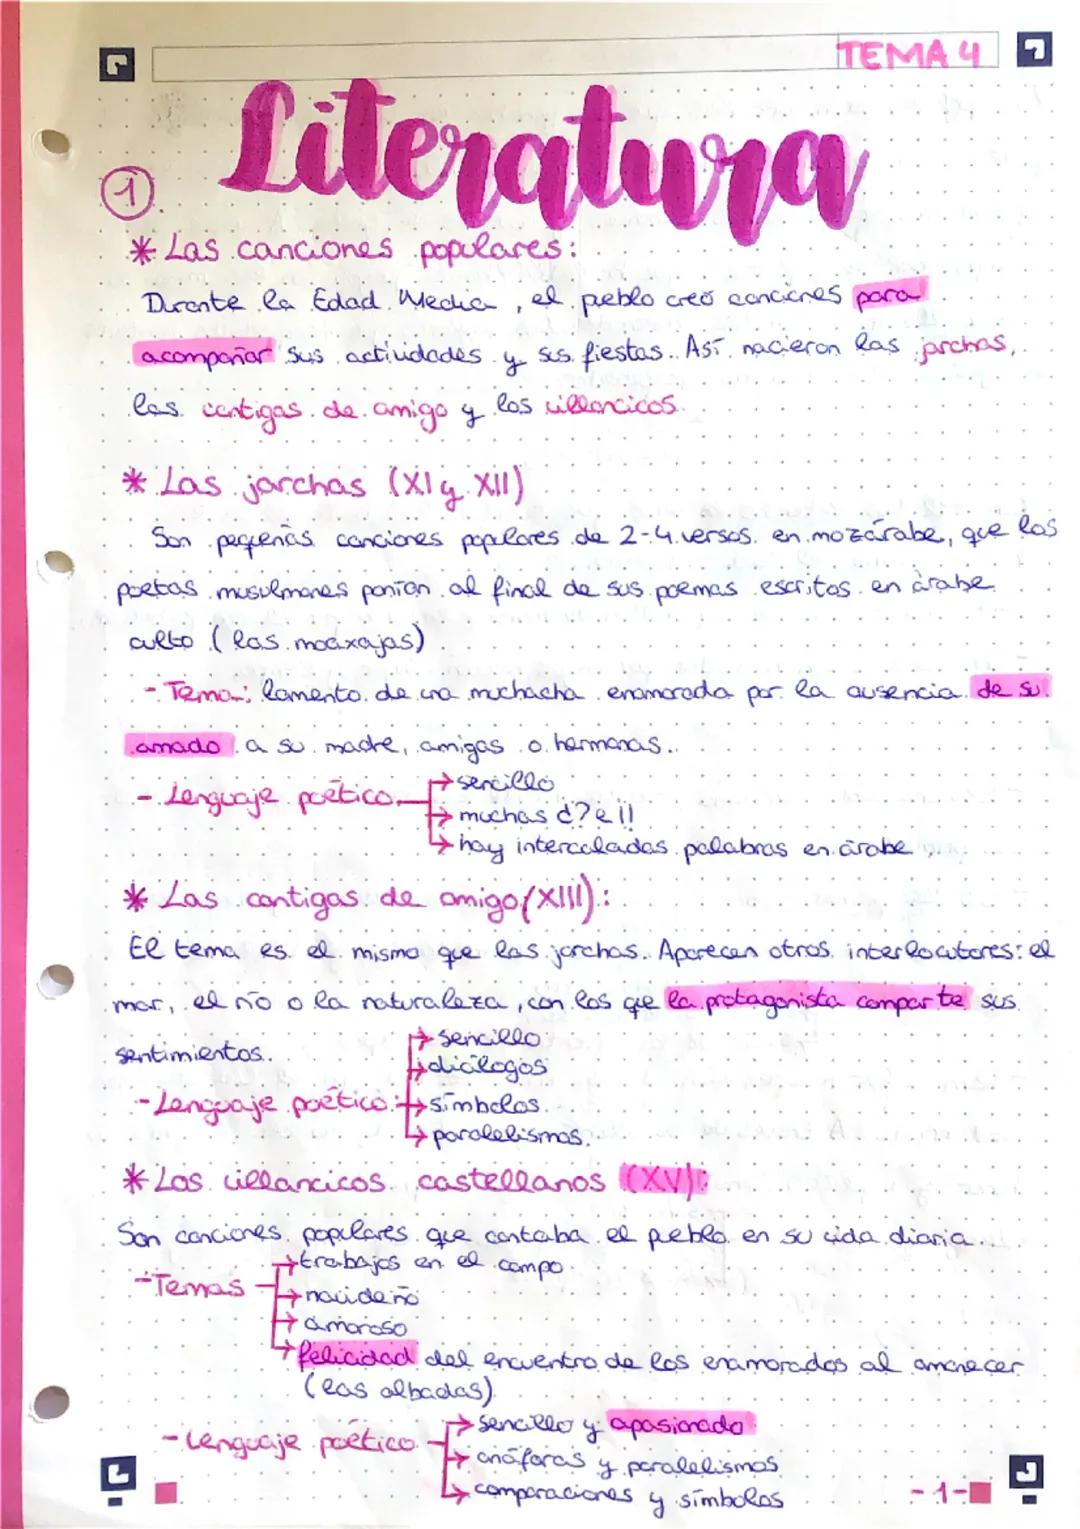 TEMA 4
Literatura
1
* Las canciones populares:
Durante la Edad Media, el pueblo creó canciones para
acompañar sus actividades y sus fiestas. Así nacieron las jarchas,
las cantigas de amigo y los villancicos.
* Las jarchas (XI y XII)
Son pequeñas canciones populares de 2-4 versos en mozárabe, que los
poetas musulmanes ponían al final de sus poemas escritos en árabe
culto (las moaxajas)
- Tema: lamento de una muchacha enamorada por la ausencia de su
amado a su madre, amigas o hermanas.
- Lenguaje poético → sencillo
→ muchas ¿? e ¡!
→ hay intercaladas palabras en árabe
* Las cantigas de amigo (XIII):
El tema es el mismo que las jarchas. Aparecen otros interlocutores: el
mar, el río o la naturaleza, con los que la protagonista comparte sus
sentimientos.
→ sencillo
→ diálogos
- Lenguaje poético: → símbolos
→ paralelismos.
* Los villancicos castellanos (XV):
Son canciones populares que cantaba el pueblo en su vida diaria.
- Temas → trabajos en el campo
→ navideño
→ amoroso
→ felicidad del encuentro de los enamorados al amanecer
(las albadas)
- Lenguaje poético → sencillo y apasionado
→ anáforas y paralelismos
→ comparaciones y símbolos
-1-